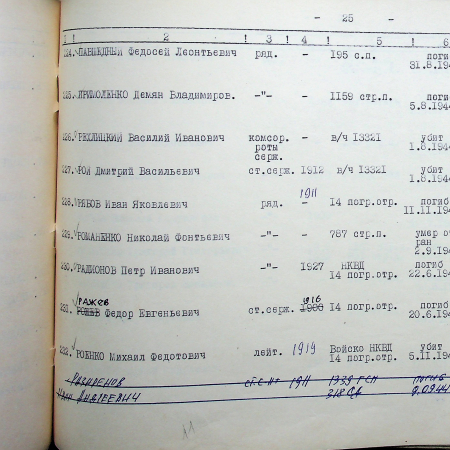 - 25 -
! 1! 2 ! 3 ! 4 ! 5 ! 6
224. Федосей Леонтьевич ряд. - 195 с.п. погиб
31.8.194
225. ПРИМОЛЕНКО Демян Владимиров. -"- - 1159 стр.п. погиб
5.8.194
226. Василий Иванович комсор. - в/ч 13321 убит
роты 1.8.194
серж.
227. РОЙ Дмитрий Васильевич ст.серж. 1912 в/ч 13321 убит
1.8.194
1911
228. РЯБОВ Иван Яковлевич ряд. - 14 погр.отр. погиб
11.11.194
229. РОМАНЕНКО Николай Фонтьевич -"- - 787 стр.п. умер от
ран
2.9.194
230. РАДИОНОВ Петр Иванович -"- 1927 НКВД погиб
14 погр.отр. 22.6.194
РАЖЕВ 1916
231. РОЖЕВ Федор Евгеньевич ст.серж. 1900 14 погр.отр. погиб
20.6.194
232. РОЕНКО Михаил Федотович лейт. 1914 Войско НКВД убит
14 погр.отр. 5.11.194
ст.с-нт 1911 1339 ГСП погиб
Андреевич 318 СД 9.0944
11